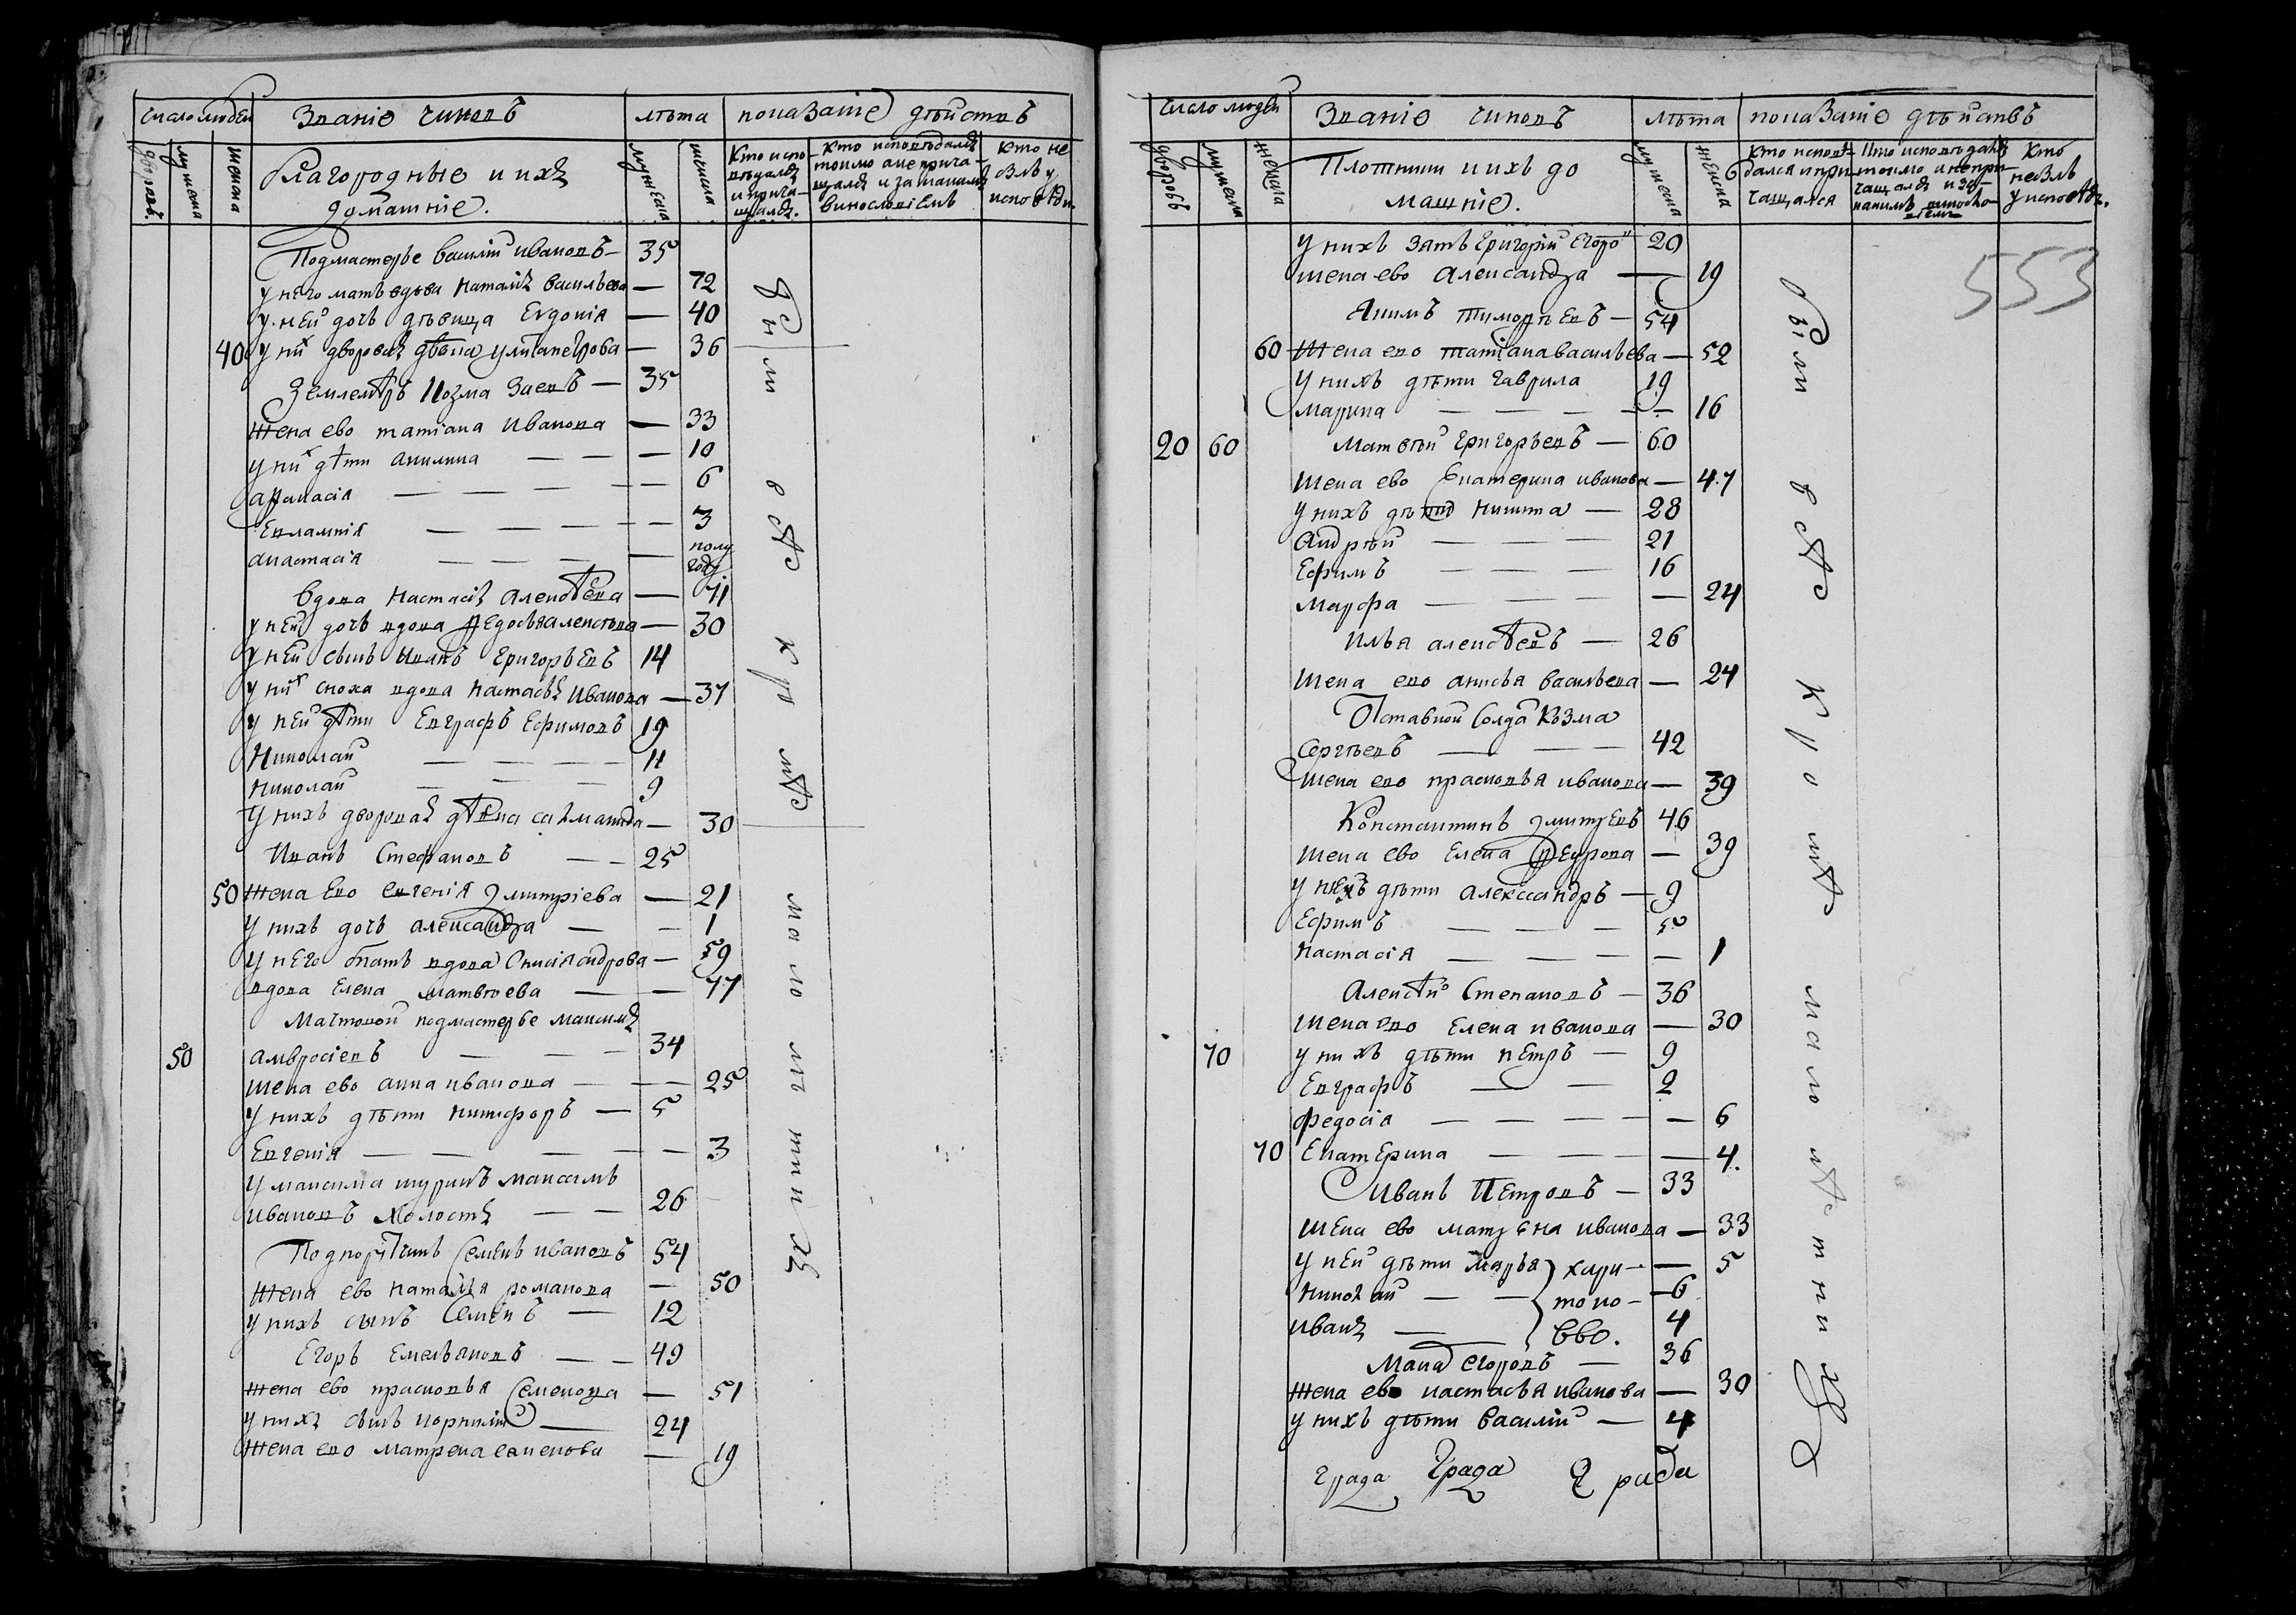 Число людей
Званiе чиновъ
лѣта
показанiе дѣйствъ
дворовъ
мужеска
женска
Благородные и ихъ
домашнiе.
мужеска
женска
Кто испо-
вѣдалъ
и прича-
щалъ.
Кто исповѣдалъ
токмо а не прича-
щалъ и за какимъ
винословiемъ
Кто не
былъ у
исповѣди.
Подмастерье василiй ивановъ — 35
у него мать вдова наталъ васильева — 72
у ней дочь дѣвица Евдокiя — 40
40 у них дворовая дѣвка улита петрова — 36
Землемѣръ Козма Заевъ — 35
жена ево татiана Иванова — 33
у них дѣти акилина — — — 10
афанасiя — — — — — 6
Евлампiя — — — — — 3
анастасiя — — — — полу
году
вдова настасiя алексѣева — 71
у ней дочь вдова Федосья алексѣева — 30
у ней сынъ иванъ григорьевъ 14
у них сноха вдова настасья иванова — 37
у ней дѣти Евграфъ Ефимовъ 19
Николай — — — — 11
николай — — — 9
у нихъ дворовая дѣвка — 30
Иванъ Стефановъ — — 25
50 жена ево евгенiя дмитрiева — 21
у нихъ дочь александра — — 1
у него мать вдова — 59
вдова Елена матвѣева — — 77
Мачтовой подмастерье максимъ
50 амвросiевъ — — — 34
жена ево анна иванова — — — 25
у нихъ дѣти никифоръ — 5
Евгенiя — — — — — 3
у максима шуринъ максимъ
ивановъ холостъ — — 26
Подпорутчикъ Семенъ ивановъ 54
жена ево наталiя романова — 50
у нихъ сынъ Семенъ — 12
Егоръ Емельяновъ — — 49
жена ево прасковья Семенова — 51
у нихъ сынъ корнилiй — 24
жена ево матрена семенова — 19
были всѣ кромѣ малолѣтнихъ
Число людей
Званiе чиновъ
лѣта
показанiе дѣйствъ
дворовъ
мужеска
женска
Плотники и ихъ до
машнiе.
мужеска
женска
Кто исповѣ-
дался и при-
чащался
Кто исповѣдалъ
токмо а не при-
чащалъ и за
какимъ виносло-
вiемъ
Кто
не былъ
у исповѣди.
553
у нихъ зять григорiй Егоро 20
жена ево александра — 19
Акимъ тимофѣевъ — 54
60 Жена ево татiана васильева — 52
у нихъ дѣти гаврила 19
марина — — — — — 16
20 60 матвѣй григорьевъ — 60
жена ево Екатерина иванова — 47
у нихъ дѣти никита — 28
андрѣй — — — 21
Ефимъ — — — 16
марфа — — — — 24
илья алексѣевъ — 26
жена ево анисья васильева — 24
Отставной солда Козма
Сергѣевъ — — 42
жена ево прасковья иванова — 39
Константинъ дмитревъ 46
жена ево Елена Федорова — 39
у нихъ дѣти александръ — 9
Ефимъ — — — 5
настасiя — — — — — 1
алексѣй Степановъ — 36
жена ево Елена иванова — 30
70 у нихъ дѣти пётръ — 9
Евграфъ — — 2
федосiя — — — — — 6
70 Екатерина — — — — 4.
Иванъ Петровъ — 33
жена ево матрена иванова — 33
у ней дѣти марья хари- — 5
николай — — тоно- — 6
иванъ — вво. 4
егоровъ — 36
жена ево настасья иванова — 30
у нихъ дѣти василiй — 4
града града града
были всѣ кромѣ малолѣтнихъ